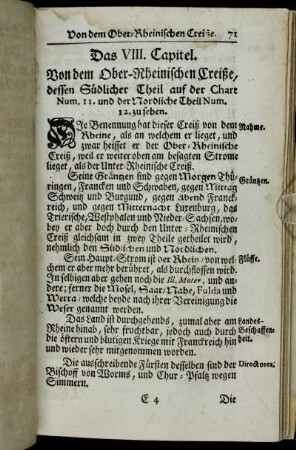 Von dem Ober-Rheinischen Creiße. 71
Das VIII. Capitel.
Von dem Ober-Rheinischen Creiße,
dessen Südlicher Theil auf der Chart
Num. 11. und der Nordliche Theil Num.
12. zu sehen.
Die Benennung hat dieser Creiß von dem Nahme.
Rheine, als an welchem er lieget, und
zwar heisset er der Ober-Rheinische
Creiß, weil er weiter oben am besagten Strome
lieget, als der Unter-Rheinische Creiß.
Seine Gränzen sind gegen Morgen Thü- Gränzen.
ringen, Francken und Schwaben, gegen Mittag
Schweiz und Burgund, gegen Abend Franck-
reich, und gegen Mitternacht Luxenburg, das
Trierische, Westphalen und Nieder-Sachsen, wo-
bey er aber doch durch den Unter-Rheinischen
Creiß gleichsam in zwey Theile getheilet wird,
nehmlich den Südlichen und Nordlichen.
Sein Haupt-Strom ist der Rhein / von wel- Flüsse.
chem er aber mehr berühret, als durchflossen wird.
In selbigen aber gehen noch die Ill, Moter, und an-
dere; ferner die Mosel, Saar / Nahe, Fulda und
Werra / welche beyde nach ihrer Vereinigung die
Weser genannt werden.
Das Land ist durchgehends, zumal aber am Landes-
Rheine hinab, sehr fruchtbar, jedoch auch durch Beschaffen-
die öftern und blutigen Kriege mit Franckreich hin heit.
und wieder sehr mitgenommen worden.
Die ausschreibende Fürsten desselben sind der Directores.
Bischoff von Worms, und Chur-Pfaltz wegen
Simmern.
E 4 Die